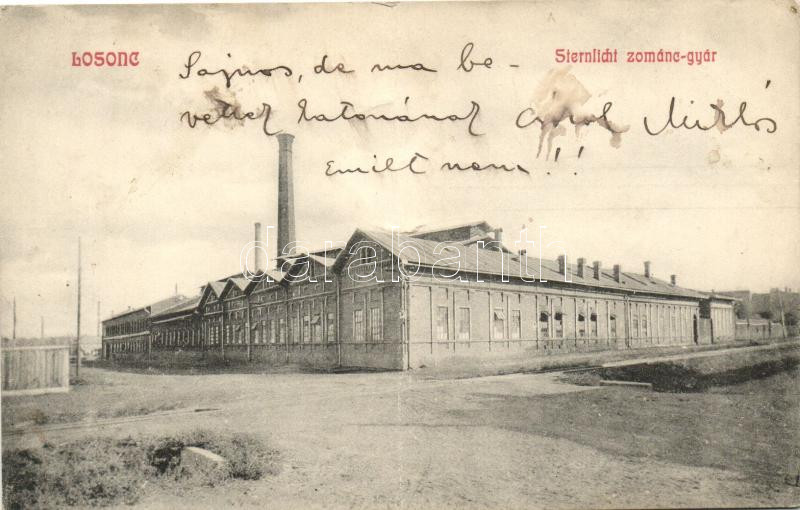 LOSONC
Sternlicht zománc-gyár
Sajnos, de ma be-
vettek katonának Miklós
Emilt nem!!
darabanth